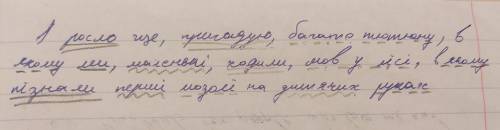 І росло ще, пригадую, багато тютюну, в
якому ми, маленькі, ходили, мов у лісі, в якому
пізнали перші мозолі на дитячих руках